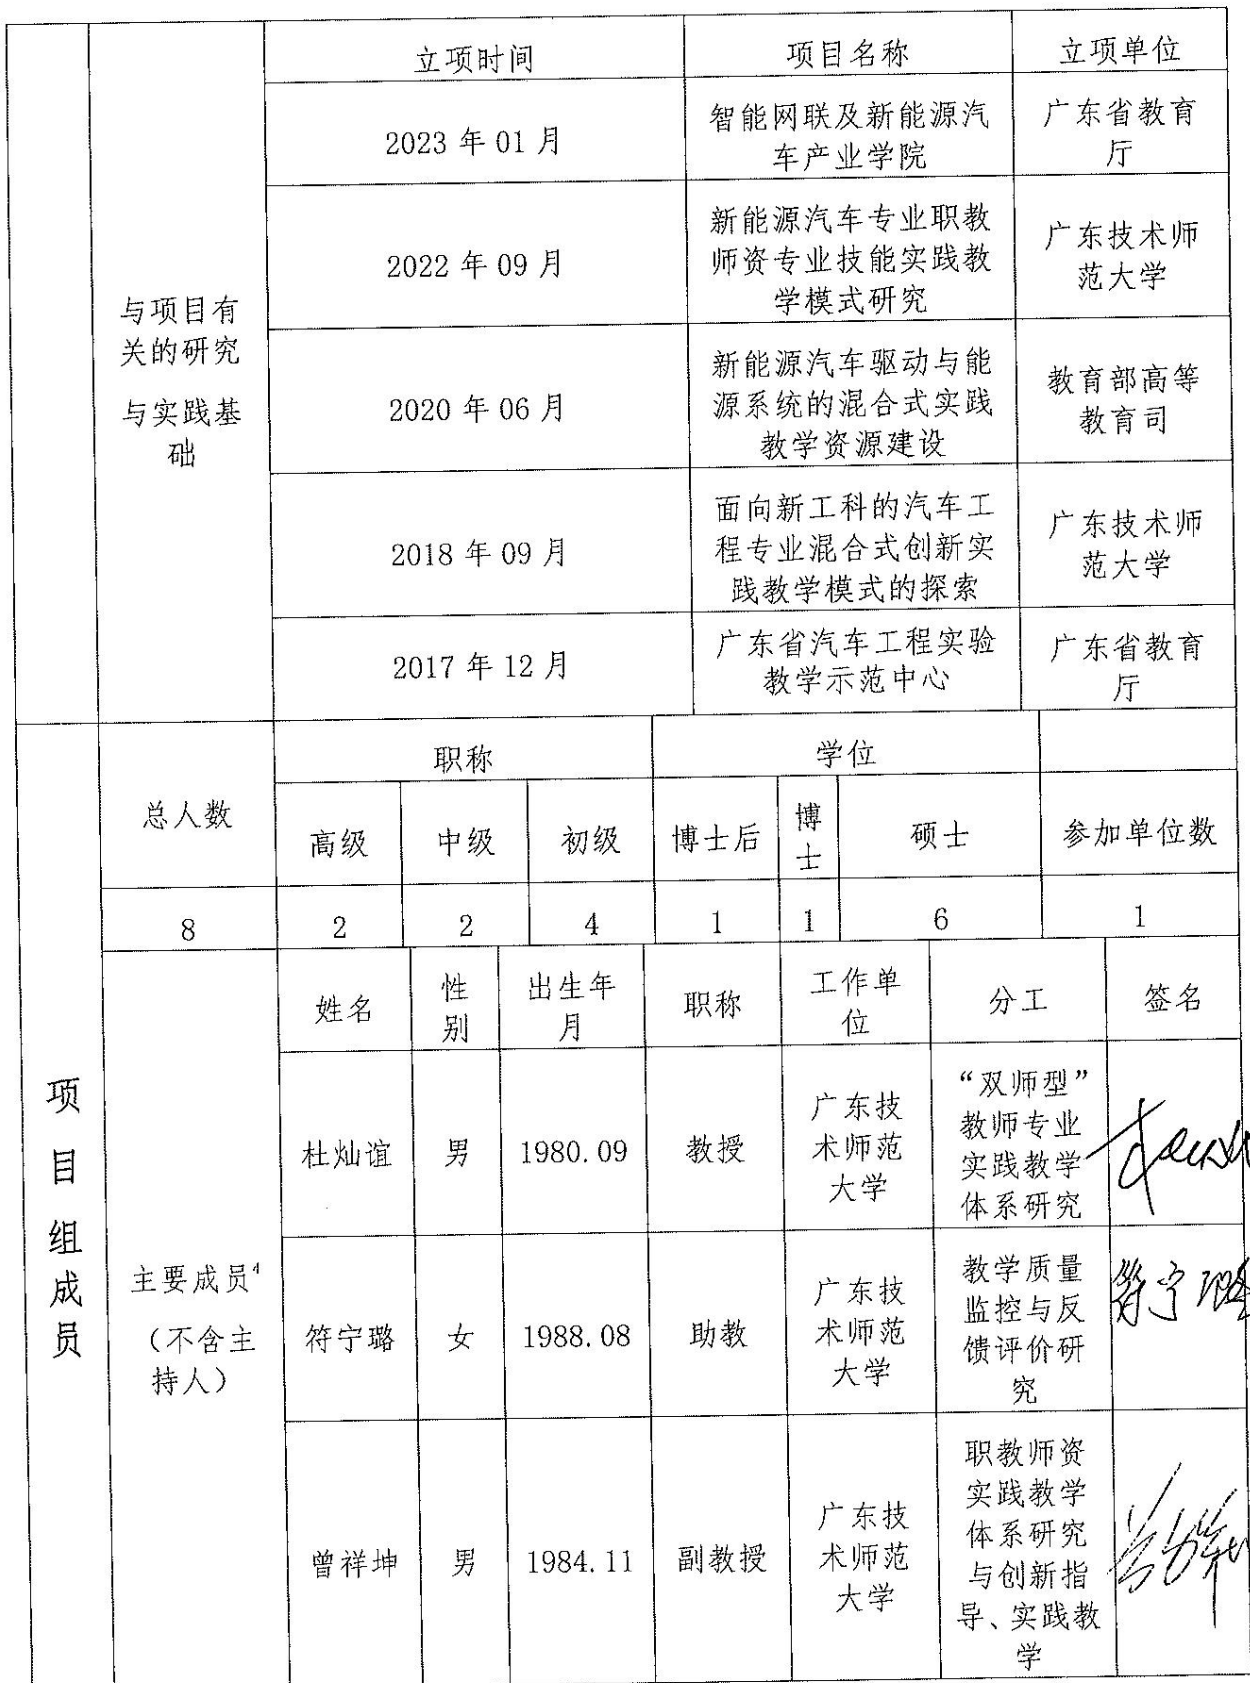 立项时间 项目名称 立项单位
2023 年 01 月
智能网联及新能源汽
车产业学院
广东省教育
厅
2022 年 09 月
新能源汽车专业职教
师资专业技能实践教
学模式研究
广东技术师
范大学
与项目有
关的研究
与实践基
础
2020 年 06 月
新能源汽车驱动与能
源系统的混合式实践
教学资源建设
教育部高等
教育司
2018 年 09 月
面向新工科的汽车工
程专业混合式创新实
践教学模式的探索
广东技术师
范大学
2017 年 12 月
广东省汽车工程实验
教学示范中心
广东省教育
厅
项
目
组
成
员
总人数
职称 学位
高级 中级 初级 博士后
博
士
硕士 参加单位数
8 2 2 4 1 1 6 1
主要成员4
（不含主
持人）
姓名
性
别
出生年
月
职称
工作单
位
分工 签名
杜灿谊 男 1980.09 教授
广东技
术师范
大学
“双师型”
教师专业
实践教学
体系研究
符宁璐 女 1988.08 助教
广东技
术师范
大学
教学质量
监控与反
馈评价研
究
符宁璐
曾祥坤 男 1984.11 副教授
广东技
术师范
大学
职教师资
实践教学
体系研究
与创新指
导、实践教
学